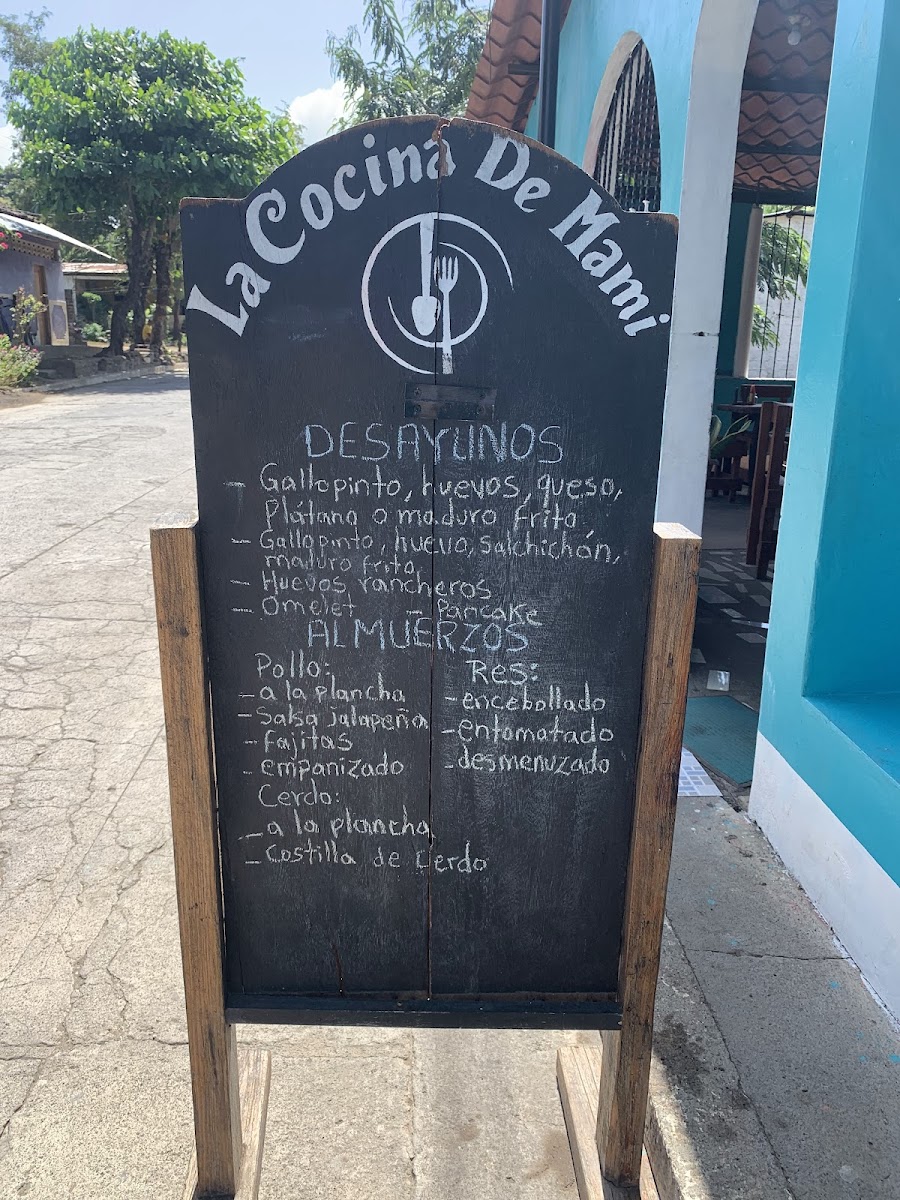 La Cocina De Mami
DESAYUNOS
- Gallopinto, huevos, queso,
Plátano o maduro frito
- Gallopinto, huevo, Salchichón,
maduro frito
- Huevos rancheros
- Omelet - Pancake
ALMUERZOS
Pollo:
- a la plancha
- Salsa jalapeña
- fajitas
- empanizado
Cerdo:
- a la plancha
- Costilla de cerdo
Res:
- encebollado
- entomatado
- desmenuzado